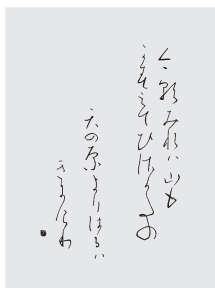 今朝みれハ山も
かすみてひさかたの
天の原よりはるハ
きにけり